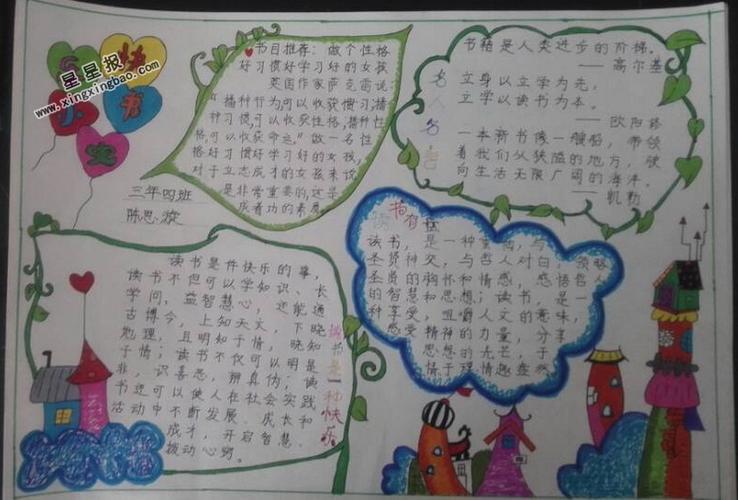 星星报
www.xingxingbao.com
快
书
三年四班
书目推荐：做个性格
好习惯好学习好的女孩
英国作家萨克雷说
“播种行为,可以收获惯习,播
种习惯可以收获性格,播种性
格,可以收获命运。”做一名性
格好习惯好学习好的女孩，
对于立志成才的女孩来说
是非常重要的,这是
成者功的素质
名人名言
书籍是人类进步的阶梯。
——高尔基
立身以立学为先，
立学以读书为本。
——欧阳修
一本新书像一艘船，带领
着我们从狭隘的地方，驶
向生活无限广阔的海洋。
——凯勒
读书是一种快乐
读书是件快乐的事，
读书不但可以学知识、长
学问，益智慧心，还能通
古博今，上知天文，下晓
地理；且明知于情，晓知
于情；读书不仅可以明是
非，识善恶，辨真伪；读
书还可以使人在社会实践
活动中不断发展、成长和
成才，开启智慧、
拨动心窍。
读书有
读书，是一种
圣贤神交，与哲人对白，领略
圣贤的胸怀和情感，感悟哲人
的智慧和思想；读书，是一
种享受，咀嚼人文的意味，
感受精神的力量，分享
思想的光芒，于
情于理情趣盎然